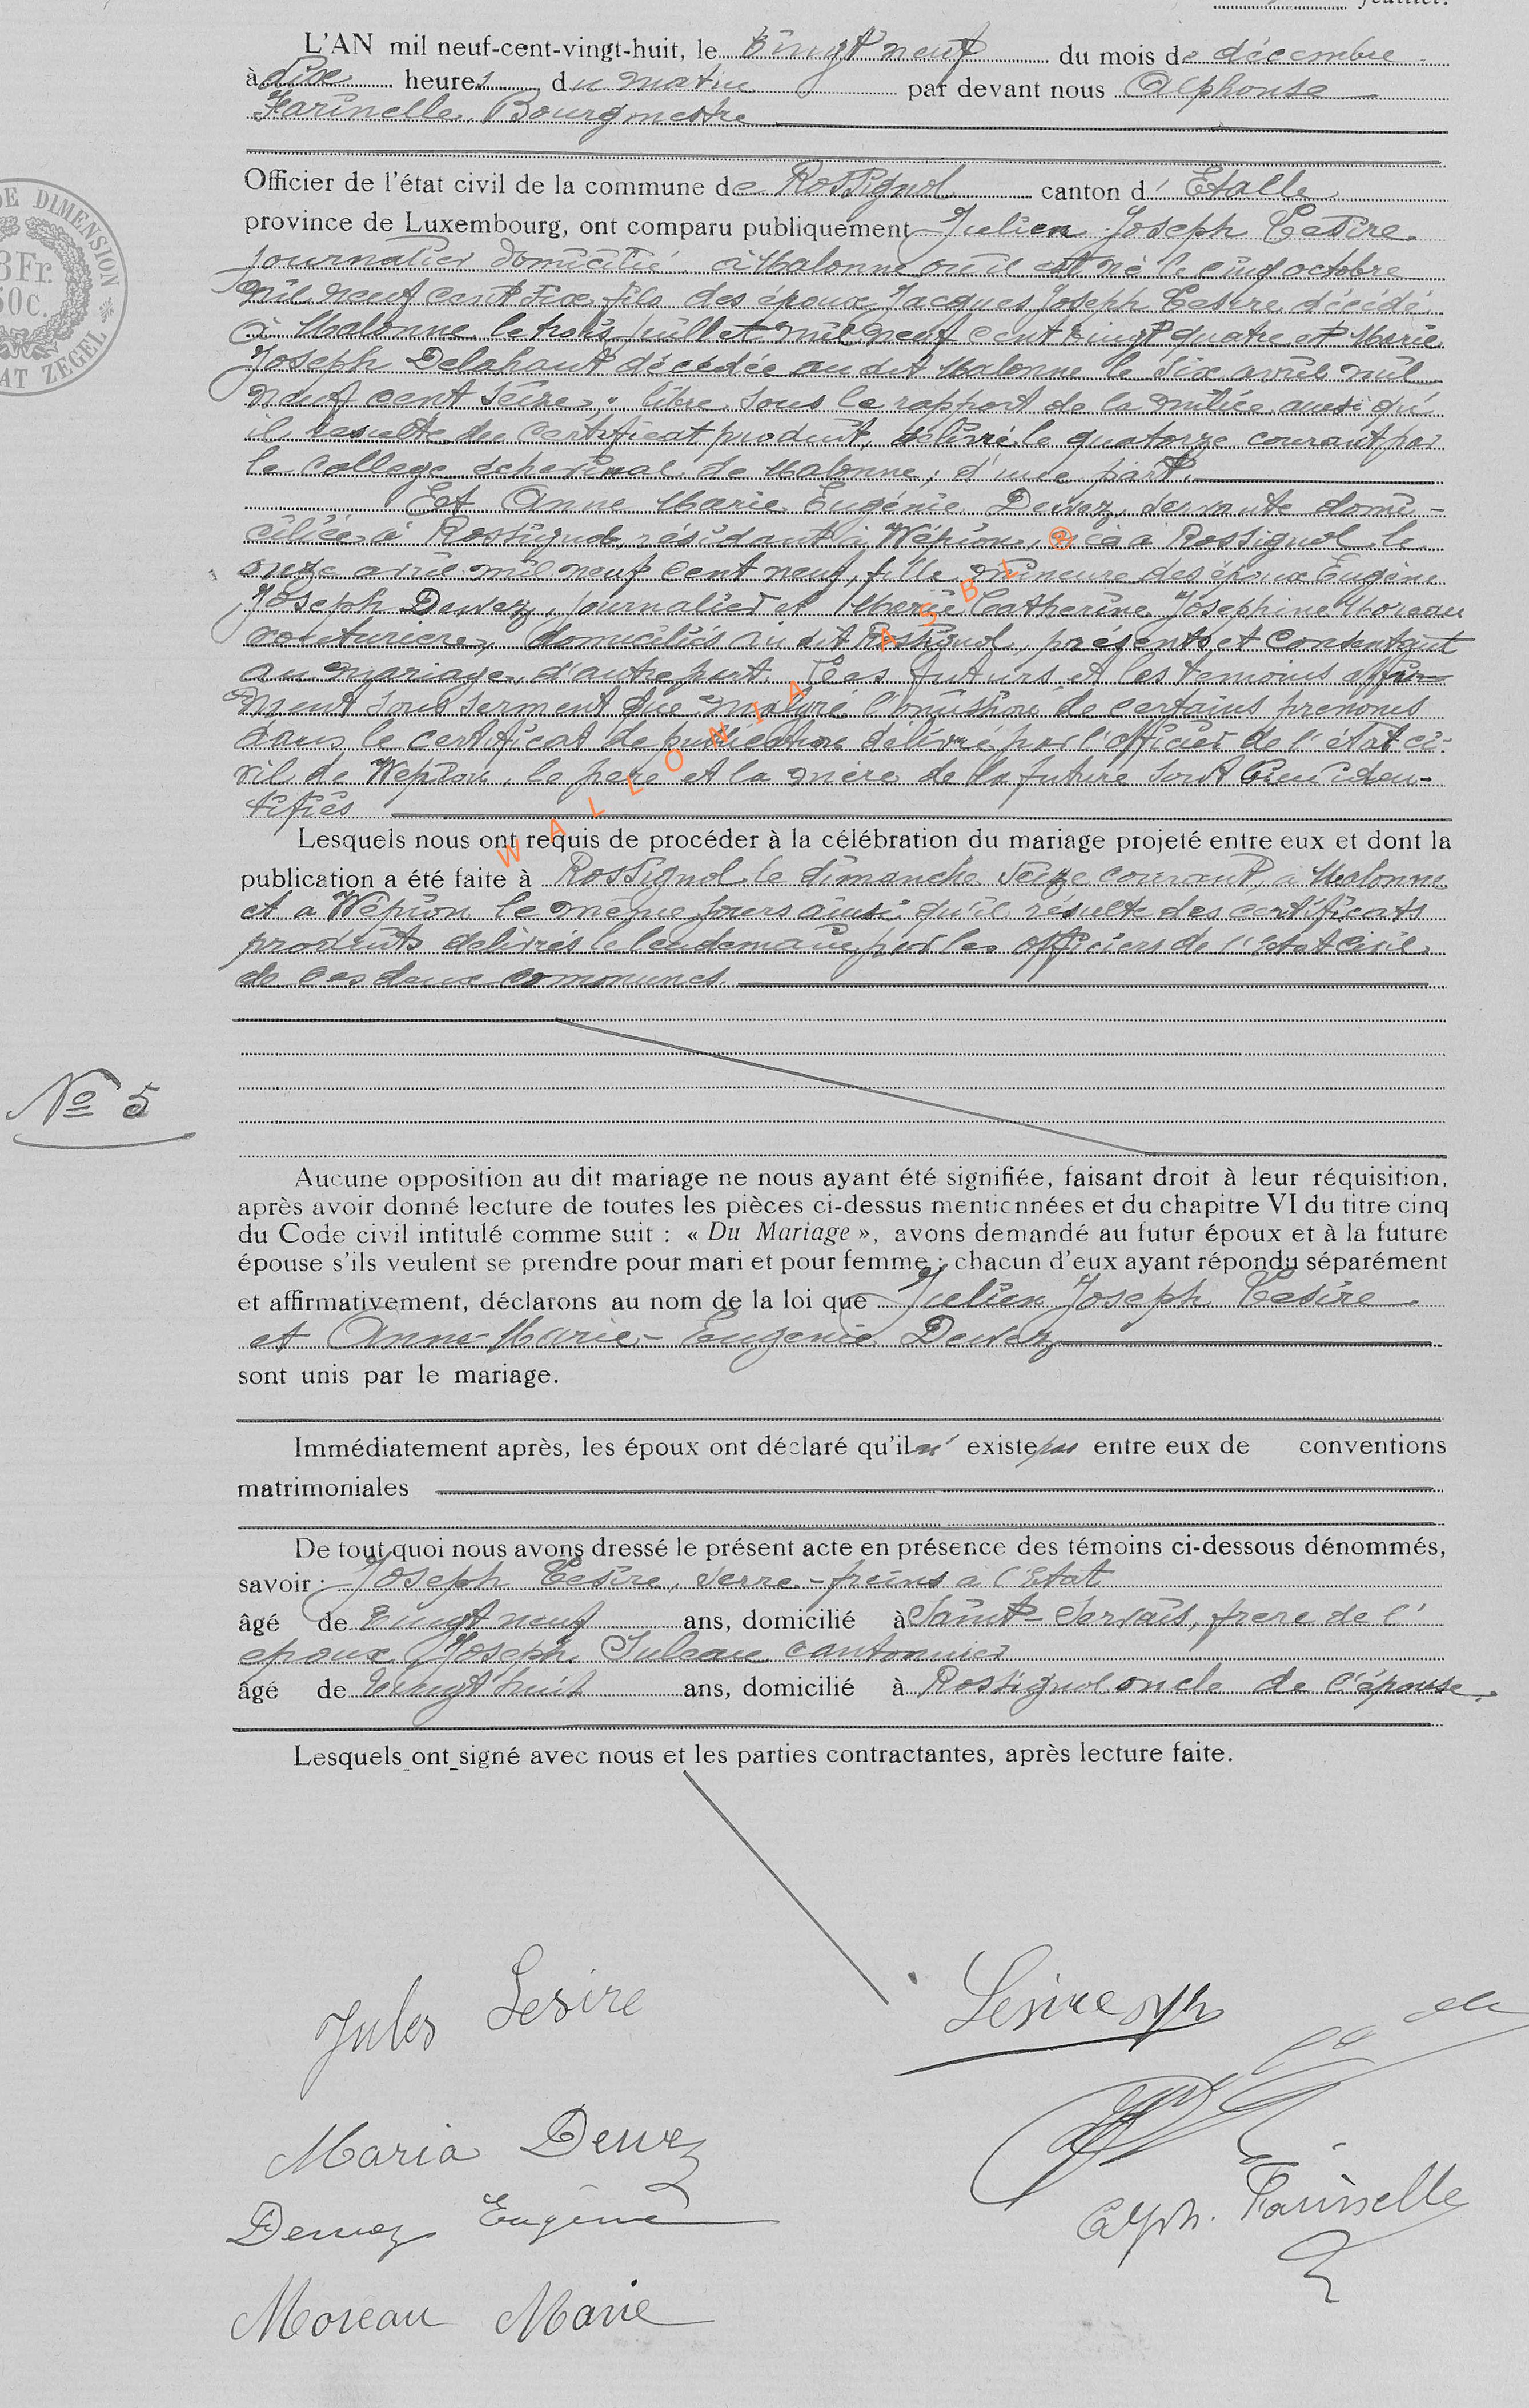 feuillet.
L'AN mil neuf-cent-vingt-huit, le vingt neuf du mois de décembre
à dix heures du matin par devant nous Alphonse
Farinelle, Bourgmestre
Officier de l'état civil de la commune de Rossignol canton d'Etalle
province de Luxembourg, ont comparu publiquement Julien Joseph Lesire
journalier domicilié à Malonne où il est né le cinq octobre
mil neuf cent six, fils des époux Jacques Joseph Lesire décédé
à Malonne le trois juillet mil neuf cent vingt quatre et Marie
Joseph Delahaut décédée au dit Malonne le six avril mil
neuf cent seize; libre sous le rapport de la milice ainsi qu'
il résulte du certificat produit, délivré le quatorze courant par
le collège echevinal de Malonne; d'une part.
Et Anne Marie Eugénie Dewez, servante domi-
ciliée à Rossignol, résidant à Wépion, née à Rossignol le
onze avril mil neuf cent neuf, fille mineure des époux Eugène
Joseph Dewez, journalier et Marie Catherine Josephine Moreau
couturière, domiciliés au dit Rossignol, présents et consentant
au mariage, d'autre part. Les futurs et les temoins affir-
ment sous serment que malgré l'omission de certains prenoms
dans le certificat de publication délivré par l'officier de l'état ci-
vil de Wépion, le père et la mère de la future sont bien iden-
tifiés
WALLONIA ASBL ®
Lesquels nous ont requis de procéder à la célébration du mariage projeté entre eux et dont la
publication a été faite à Rossignol le dimanche seize courant, à Malonne
et a Wépion le même jours ainsi qu'il résulte des certificats
produits delivrés le lendemain par les officiers de l'Etat civil
de ces deux communes.
No 5
Aucune opposition au dit mariage ne nous ayant été signifiée, faisant droit à leur réquisition,
après avoir donné lecture de toutes les pièces ci-dessus mentionnées et du chapitre VI du titre cinq
du Code civil intitulé comme suit : « Du Mariage », avons demandé au futur époux et à la future
épouse s'ils veulent se prendre pour mari et pour femme; chacun d'eux ayant répondu séparément
et affirmativement, déclarons au nom de la loi que Julien Joseph Lesire
et Anne-Marie-Eugenie Dewez
sont unis par le mariage.
Immédiatement après, les époux ont déclaré qu'il n'existe pas entre eux de conventions
matrimoniales
De tout quoi nous avons dressé le présent acte en présence des témoins ci-dessous dénommés,
savoir : Joseph Lesire, serre-freins a l'Etat
âgé de vingt neuf ans, domicilié à Saint-Servais, frere de l'
epoux Joseph cantonnier
âgé de vingt huit ans, domicilié à Rossignol oncle de l'épouse.
Lesquels ont signé avec nous et les parties contractantes, après lecture faite.
Jules Lesire
Lesire Jph
Maria Dewez
Dewez Eugène
Alph. Farinelle
Moreau Marie
DE DIMENSION
3Fr.
50c.
AT ZEGEL